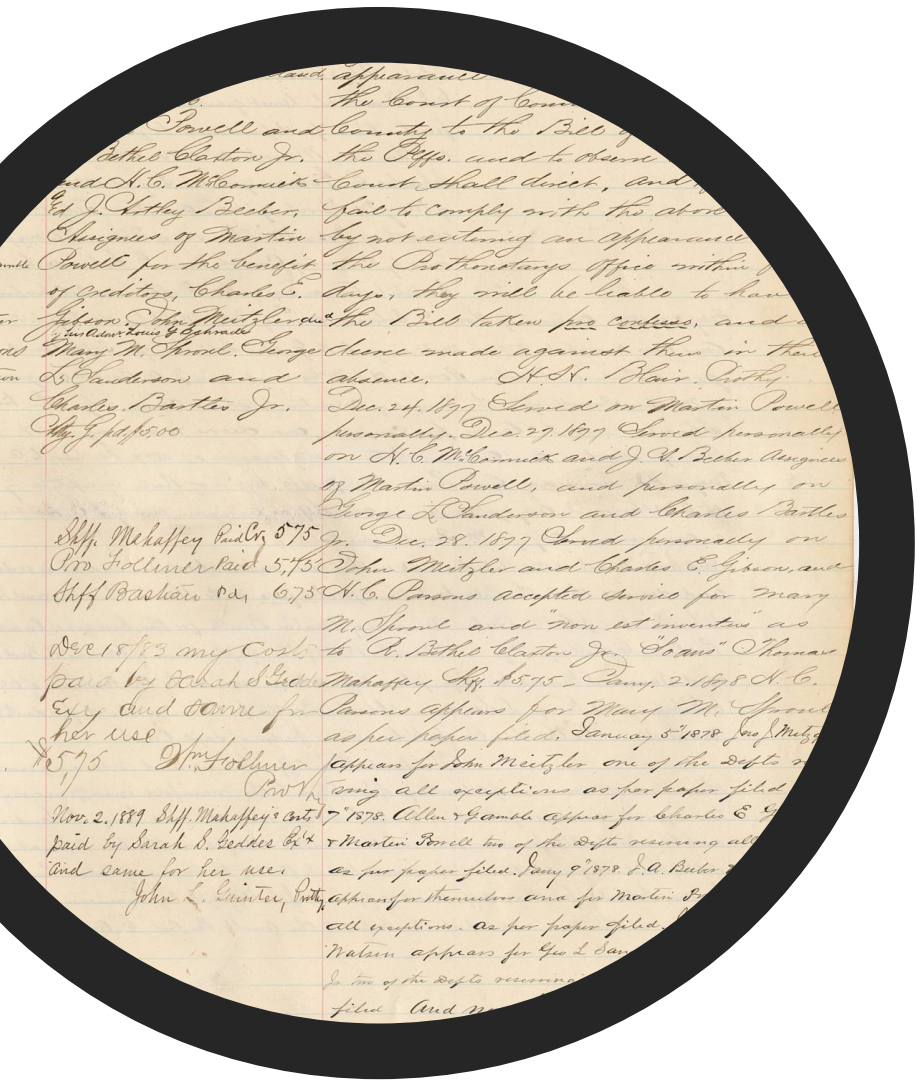 Powell and
Bethel Claxton Jr.
and H. C. McCormick
Ed J. Artley Beeber,
Assignees of Martin
Powell for the benefit
of creditors, Charles E.
Gibson, John Meitzler
Mary M. Sproul. George
L. Sanderson and
Charles Bartles Jr.
Atty. G. pd $5.00
Shff. Mahaffey Paid 575
Pro Follmer Paid 5,75
Shff Bastian Pd, 6,75
Dec 18/83 my costs
paid by Sarah S Geddes
Exx and same for
her use
$5,75 Wm Follmer
Prothy
Nov. 2. 1889 Shff. Mahaffey's costs
paid by Sarah S. Geddes Exx
and same for her use.
John L. Guinter, Prothy.
appearance
the Court of
County to the Bill
the Plffs. and to observe
Court shall direct, and
fail to comply with the above
by not entering an appearance
the Prothonotarys office within
days, they will be liable to have
the Bill taken pro confesso, and a
decree made against them in their
absence. H. H. Blair Prothy.
Dec. 24. 1877 Served on Martin Powell
personally. Dec. 27. 1877 Served personally
on H. C. McCormick and J. A. Beeber Assignees
of Martin Powell, and personally on
George L. Sanderson and Charles Bartles
Jr. Dec. 28. 1877 Served personally on
John Meitzler and Charles E. Gibson, and
H. C. Parsons accepted service for Mary
M. Sproul and "non est inventus" as
to R. Bethel Claxton Jr. "So ans" Thomas
Mahaffey Shff. $5.75 - Jany. 2. 1878 H. C.
Parsons appears for Mary M. Sproul
as per paper filed. January 5" 1878 Jno J Metzger
appears for John Meitzler one of the Defts
ving all exceptions as per paper filed
7" 1878. Allen & Gamble appear for Charles E
& Martin Powell two of the Defts reserving all
as per paper filed. Jany 9" 1878. J. A. Beeber
appears for themselves and for Martin
all exceptions. as per paper filed.
Watson appears for Geo L San
Jr two of the Defts reserving
filed And